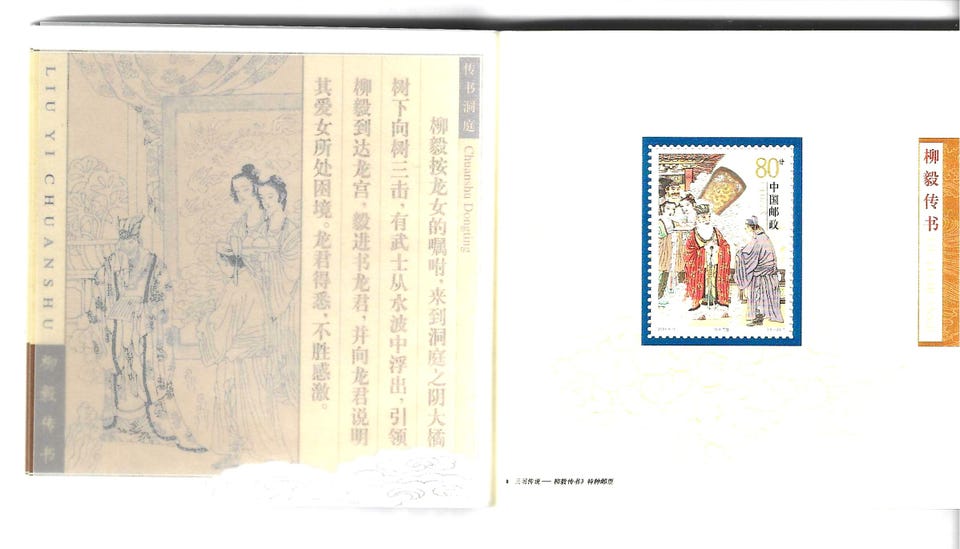 LIU YI CHUANSHU
柳毅传书
传书洞庭
Chuanshu Dongting
柳毅按龙女的嘱咐，来到洞庭之阴大橘
树下向树三击，有武士从水波中浮出，引领
柳毅到达龙宫，毅进书龙君，并向龙君说明
其爱女所处困境。龙君得悉，不胜感激。
80分
中国邮政
柳毅传书
民间传说——柳毅传书》特种邮票